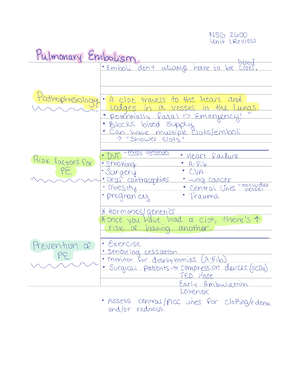 NSG 2600
Unit 1 Review
Pulmonary Embolism
• Emboli don't always have to be blood clots.
Pathophysiology
• A clot travels to the heart and
lodges in a vessel in the lungs
• Potentially Fatal → Emergency!
• Blocks blood supply
• Can have multiple clots/emboli
→ "Shower Clots"
Risk Factors for
PE
• DVT - most common
• Smoking
• Surgery
• Oral contraceptives
• Obesity
• Pregnancy
• Heart failure
• A-Fib
• CVA
• Lung cancer
• Central Lines - occludes vessel
• Trauma
* Hormones/genetics
* Once you have had a clot, there's ↑
risk of having another.
Prevention of
PE
• Exercise
• Smoking cessation
• Monitor for dysrhythmias (A-Fib)
• Surgical patients → compression devices (SCDs)
TED Hose
Early Ambulation
Lovenox
• Assess central/PICC lines for clotting/edema
and/or redness.